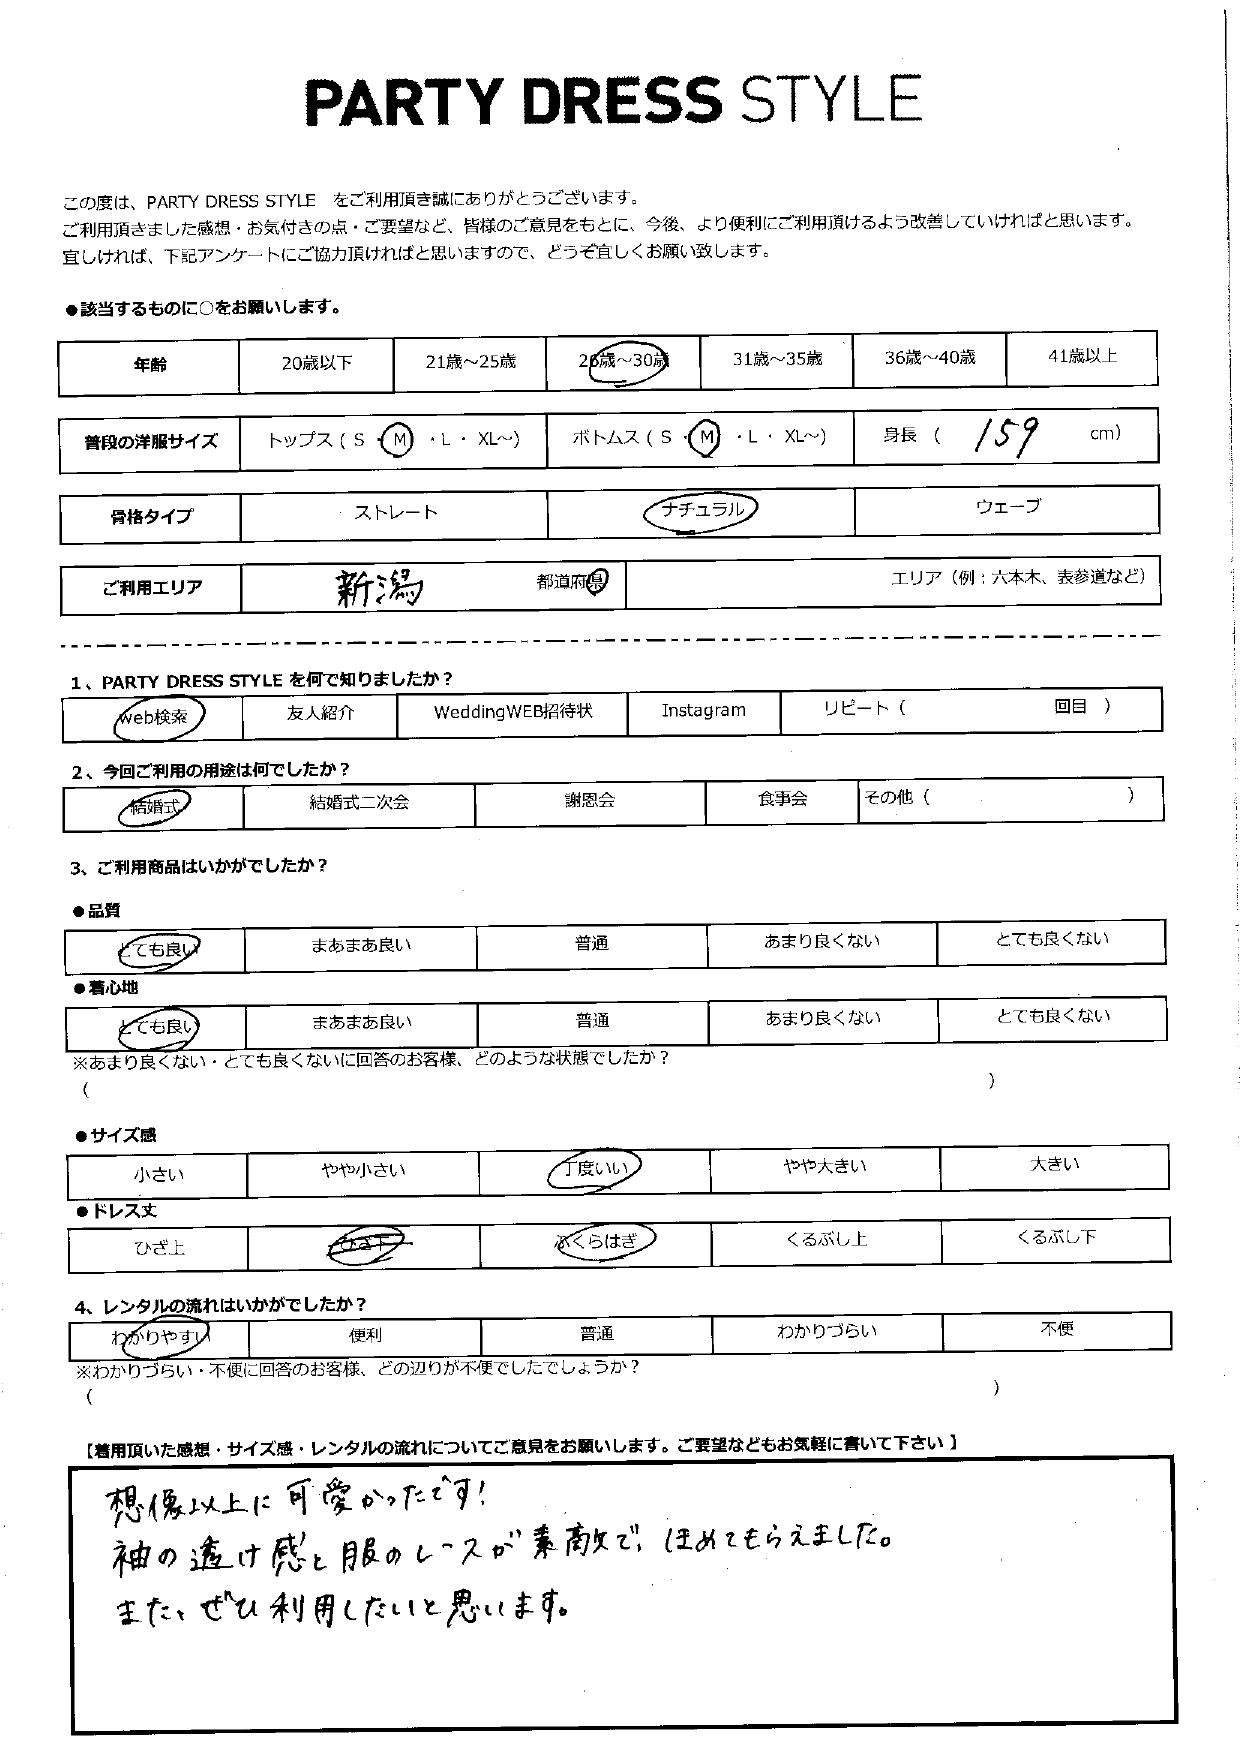 PARTY DRESS STYLE
この度は、PARTY DRESS STYLE をご利用頂き誠にありがとうございます。
ご利用頂きました感想・お気付きの点・ご要望など、皆様のご意見をもとに、今後、より便利にご利用頂けるよう改善していければと思います。
宜しければ、下記アンケートにご協力頂ければと思いますので、どうぞ宜しくお願い致します。
●該当するものに○をお願いします。
年齢 20歳以下 21歳～25歳 26歳～30歳 31歳～35歳 36歳～40歳 41歳以上
普段の洋服サイズ トップス ( S ・ M ・ L ・ XL～) ボトムス ( S ・ M ・ L ・ XL～) 身長 ( 159 cm)
骨格タイプ ストレート ナチュラル ウェーブ
ご利用エリア 新潟 都道府県 エリア（例：六本木、表参道など）
1、PARTY DRESS STYLE を何で知りましたか？
Web検索 友人紹介 WeddingWEB招待状 Instagram リピート ( 回目 )
2、今回ご利用の用途は何でしたか？
結婚式 結婚式二次会 謝恩会 食事会 その他 ( )
3、ご利用商品はいかがでしたか？
●品質
とても良い まあまあ良い 普通 あまり良くない とても良くない
●着心地
とても良い まあまあ良い 普通 あまり良くない とても良くない
※あまり良くない・とても良くないに回答のお客様、どのような状態でしたか？
( )
●サイズ感
小さい やや小さい 丁度いい やや大きい 大きい
●ドレス丈
ひざ上 ひざ下 ふくらはぎ くるぶし上 くるぶし下
4、レンタルの流れはいかがでしたか？
わかりやすい 便利 普通 わかりづらい 不便
※わかりづらい・不便に回答のお客様、どの辺りが不便でしたでしょうか？
( )
【着用頂いた感想・サイズ感・レンタルの流れについてご意見をお願いします。ご要望などもお気軽に書いて下さい 】
想像以上に可愛かったです！
袖の透け感と服のレースが素敵で、ほめてもらえました。
また、ぜひ利用したいと思います。